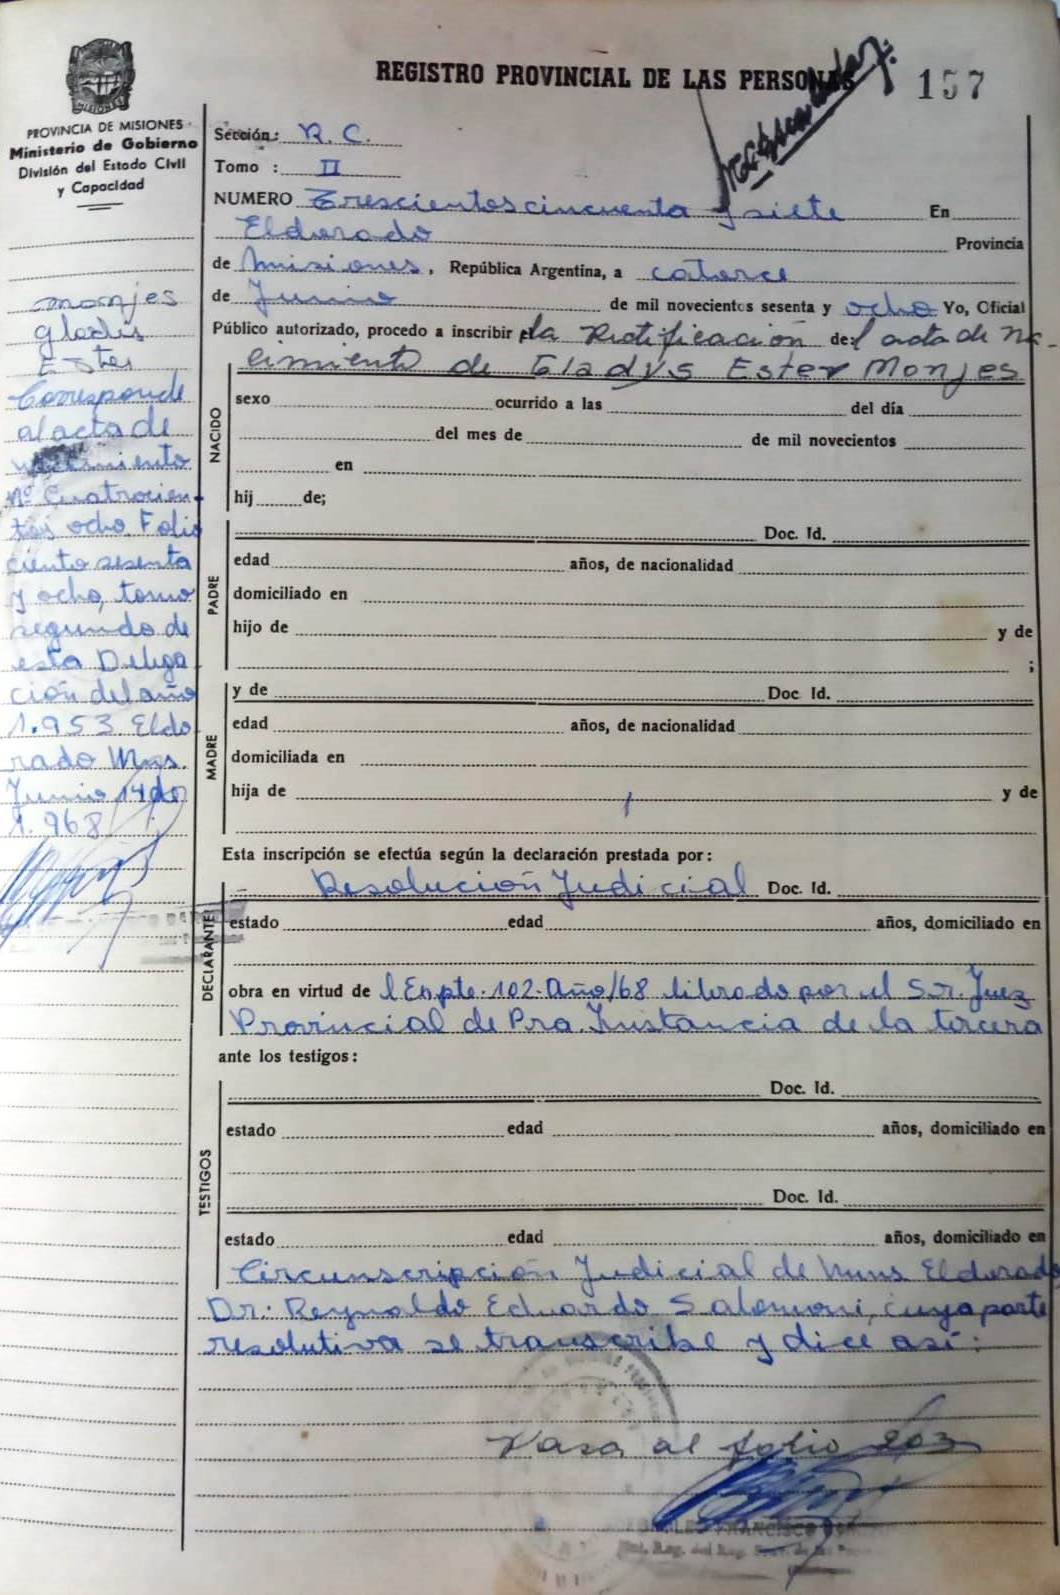 REGISTRO PROVINCIAL DE LAS PERSONAS
157
MISIONES
PROVINCIA DE MISIONES
Ministerio de Gobierno
División del Estado Civil
y Capacidad
Monjes
Gladis
Ester
Corresponde
al acta de
nacimiento
Nº Cuatrocien-
tos ocho Folio
ciento sesenta
y ocho, tomo
segundo de
esta Delega
ción del año
1.953 Eldo
rado Mns.
Junio 14 de
1.968
Sección: R.C.
Tomo : II
NUMERO Trescientos cincuenta y siete En
Eldorado Provincia
de Misiones, República Argentina, a catorce
de Junio de mil novecientos sesenta y ocho Yo, Oficial
Público autorizado, procedo a inscribir la Rectificación del acta de Na-
cimiento de Gladys Ester Monjes
NACIDO
sexo ocurrido a las del día
del mes de de mil novecientos
en
hij de;
PADRE
Doc. Id.
edad años, de nacionalidad
domiciliado en
hijo de y de
;
MADRE
y de Doc. Id.
edad años, de nacionalidad
domiciliada en
hija de y de
Esta inscripción se efectúa según la declaración prestada por:
DECLARANTE
Resolución Judicial Doc. Id.
estado edad años, domiciliado en
obra en virtud de l Expte. 102-Año/68 librado por el Sr. Juez
Provincial de Pra. Instancia de la tercera
ante los testigos:
TESTIGOS
Doc. Id.
estado edad años, domiciliado en
Doc. Id.
estado edad años, domiciliado en
Circunscripción Judicial de Mnns Eldorado
Dr: Reynaldo Eduardo Salomoni, cuya parte
resolutiva se transcribe y dice así:
Pasa al folio 203
FRANCISCO